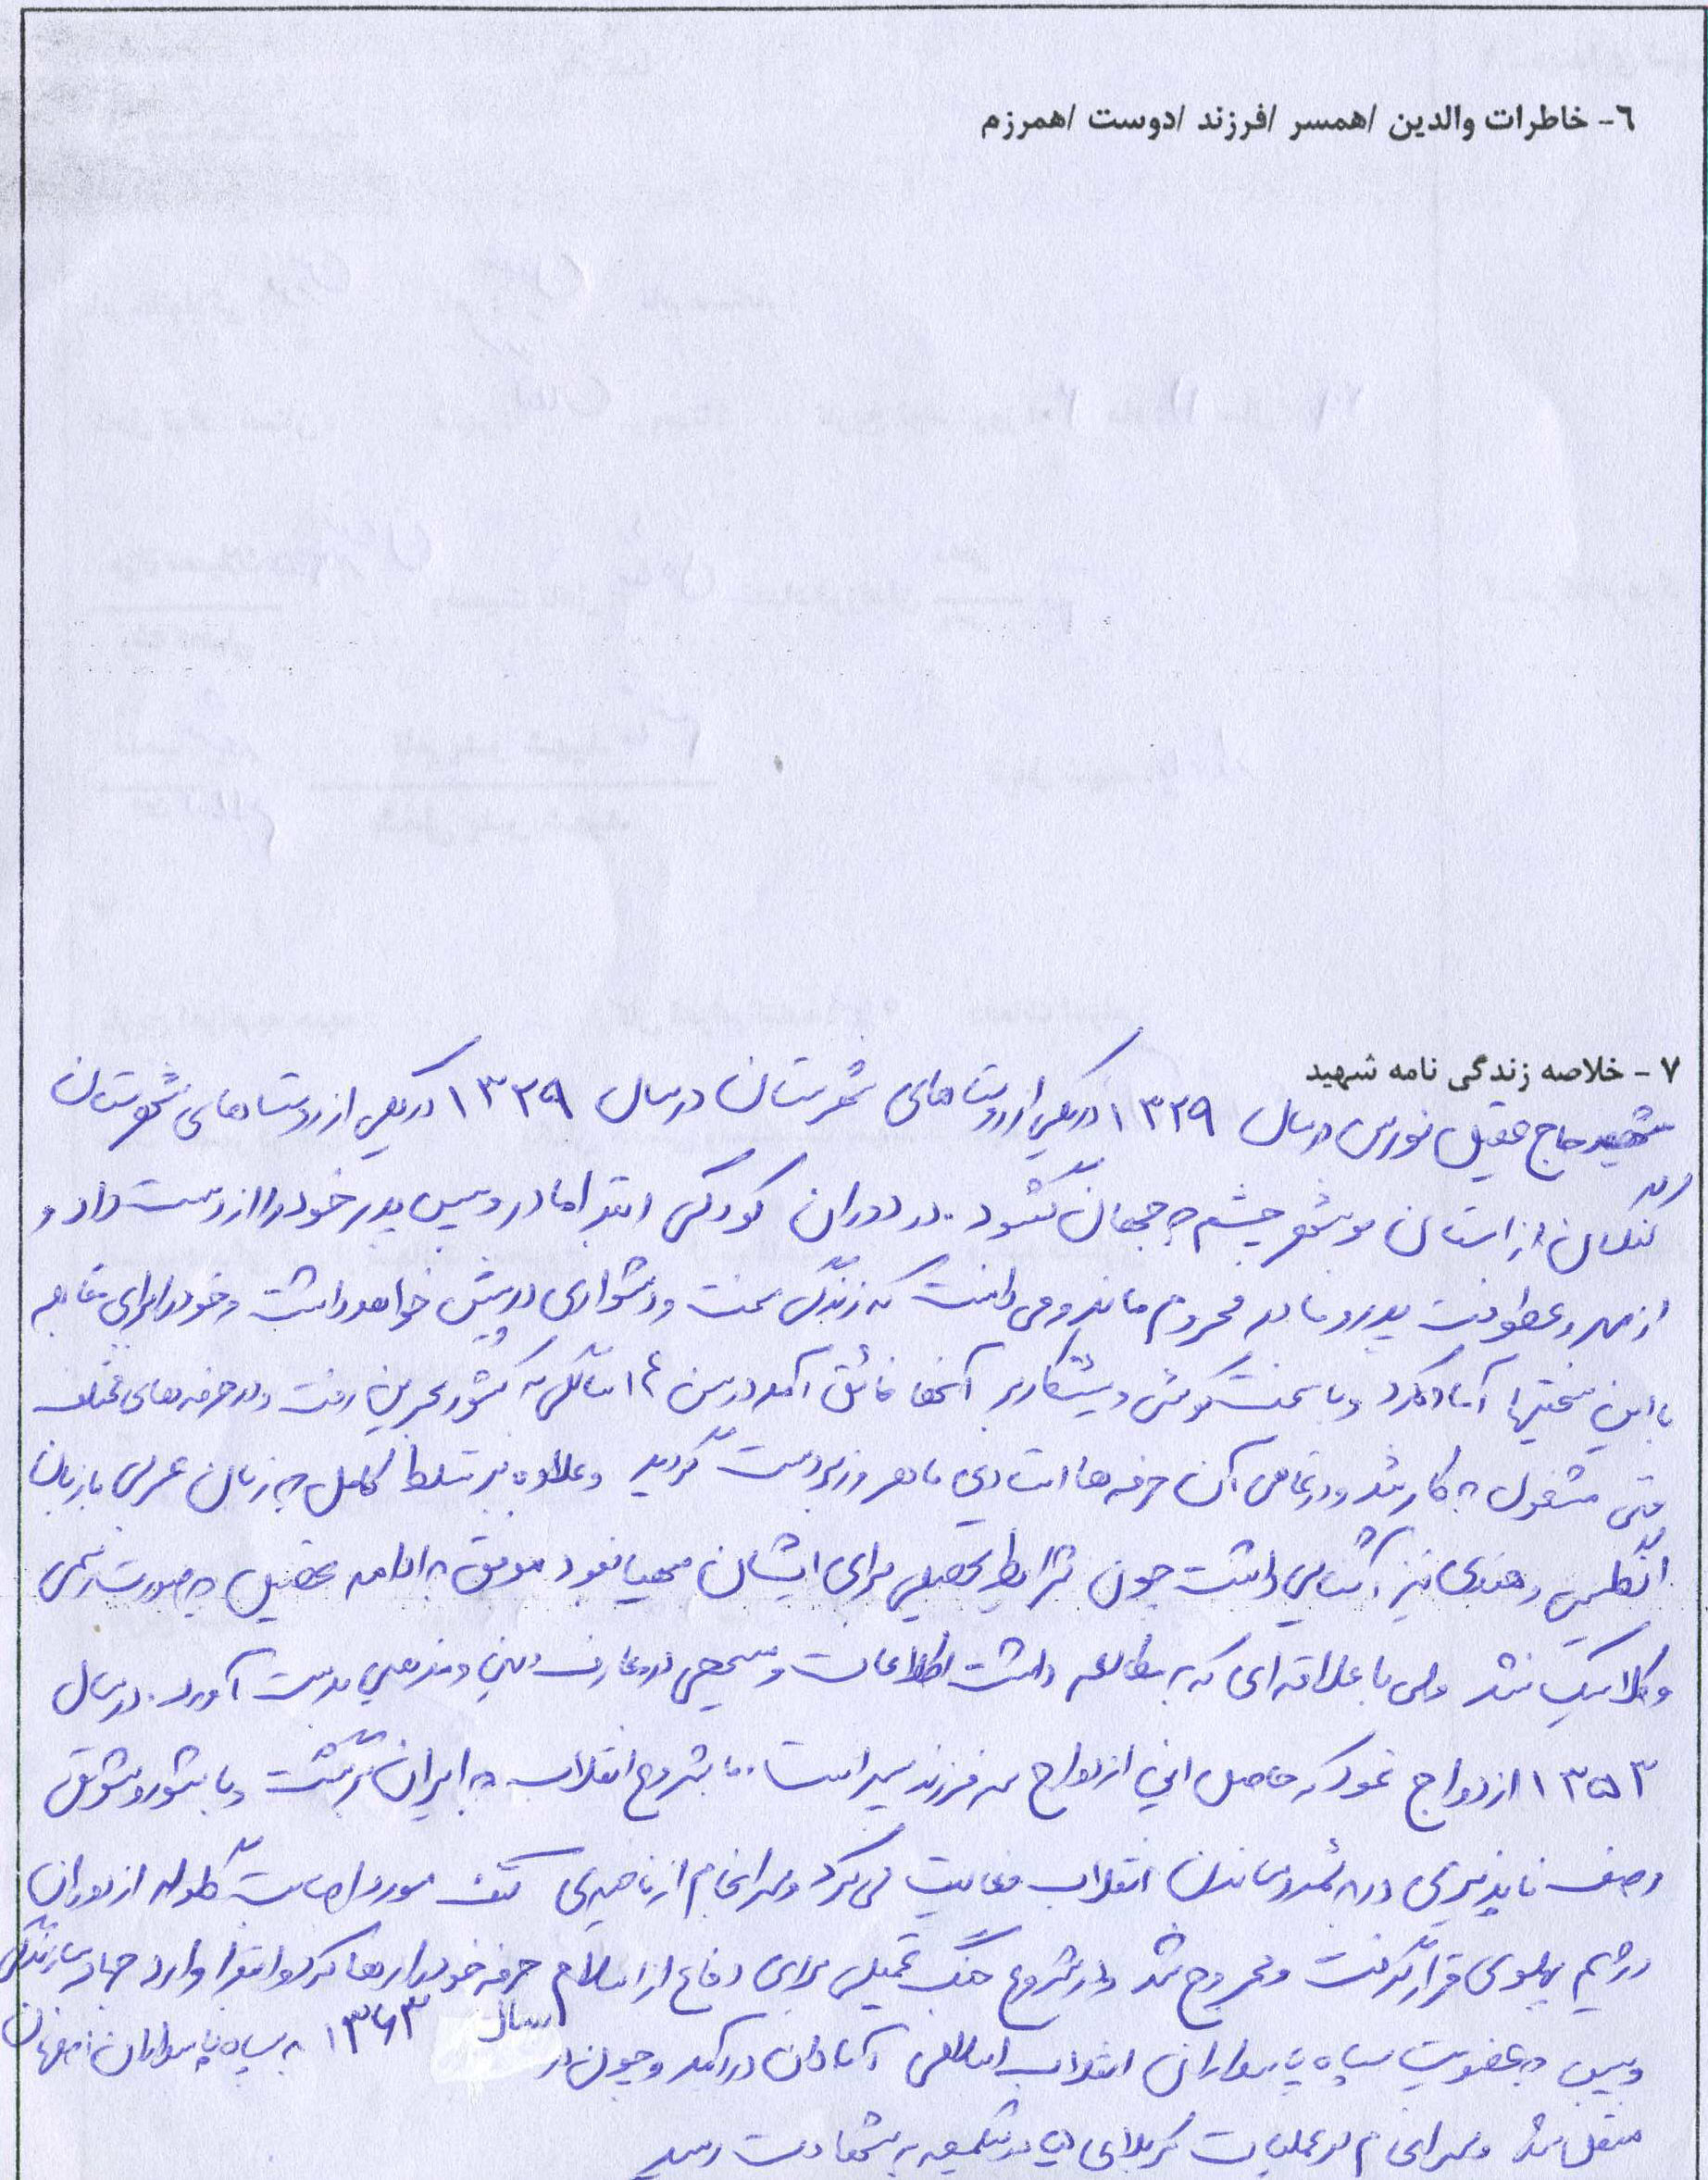 ٦- خاطرات والدین /همسر /فرزند /دوست /همرزم
٧ - خلاصه زندگی نامه شهید
شهید حاج عقیل نورسی درسال ۱۳۲۹ دریکی ازروستاهای شهرستان درسال ۱۳۲۹ دریکی از روستاهای شهرستان
کنگان از استان بوشهر چشم به جهان گشود. در دوران کودکی ابتدا مادر وسپس پدر خود را از دست داد و
از مهر و عطوفت پدر و مادر محروم ماند و می دانست که زندگی سخت و دشواری در پیش خواهد داشت و خود را برای مقابله
با این سختیها آماده کرد و با سخت کوشی و پشتکار بر آنها فائق آمد در سن ۱۴ سالگی به کشور بحرین رفت و در حرفه های مختلف
فنی مشغول به کار شد و در تمامی آن حرفه ها استادی ماهر و زبردست گردید وعلاوه بر تسلط کامل به زبان عربی با زبان
انگلیسی و هندی نیز آشنایی داشت چون شرایط تحصیلی برای ایشان مهیا نبود موفق به ادامه تحصیل به صورت رسمی
و کلاسیک نشد ولی با علاقه ای که به مطالعه داشت اطلاعات وسیعی در معارف دینی و مذهبی بدست آورد. در سال
۱۳۵۳ ازدواج نمود که حاصل این ازدواج سه فرزند پسر است. با شروع انقلاب به ایران برگشت و با شور و شوق
وصف ناپذیری در به ثمر رساندن انقلاب فعالیت می کرد و سرانجام از ناحیه ی کتف مورد اصابت گلوله از دوران
رژیم پهلوی قرار گرفت و مجروح شد و در شروع جنگ تحمیلی برای دفاع از اسلام حرفه خود را رها کرد و ابتدا وارد جهاد سازندگی
وسپس به عضویت سپاه پاسداران انقلاب اسلامی آبادان در آمد و چون در سال ۱۳۶۳ به سپاه پاسداران اصفهان
منتقل شد و سرانجام در عملیات کربلای ۵ در شلمچه به شهادت رسید